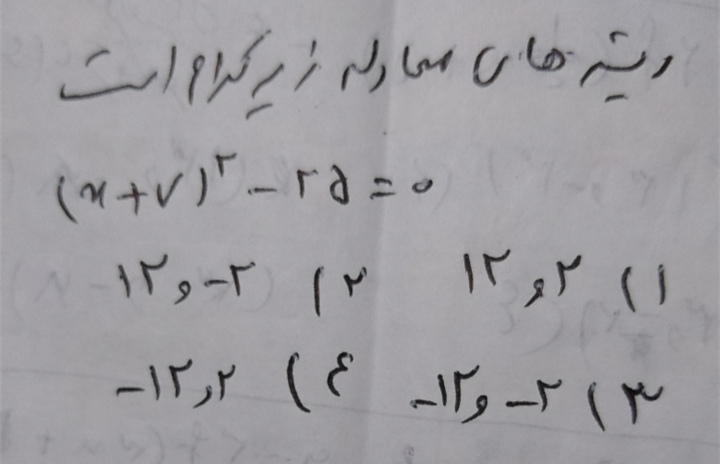 ریشه های معادله زیر کدام است
(x+۷)^۲ - ۲۵ = ۰
۱) ۲ و ۱۲ ۲) -۲ و ۱۲
۳) -۲ و -۱۲ ۴) ۲ و -۱۲